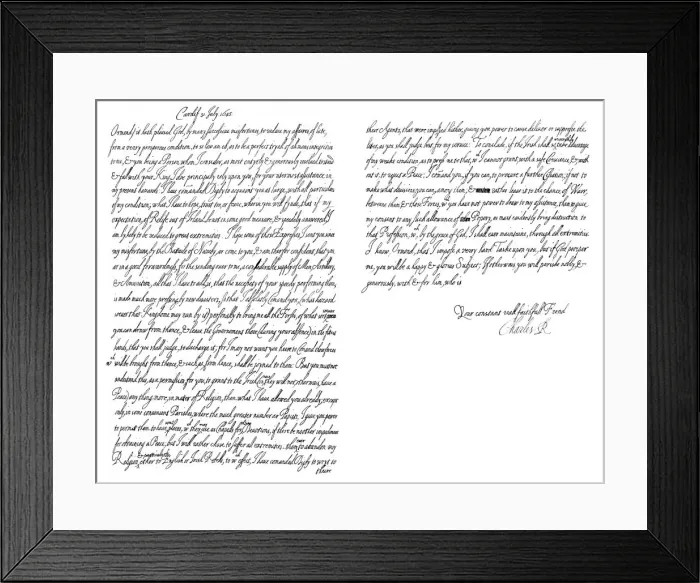 Cardif 31 July 1645
Ormond, it hath pleased God, by many successive misfortunes, to reduce my affaires of late,
from a verry prosperous condition, to so low an eb, as to be a perfect tryall of all mens integrities
to me, & you being a Person whom I consider, as most entyrly & generously resolved to stand
& fall with your King, I doe principally rely upon you, for your utermost assistance, in
my present hazards. I have comanded Digby to acquaint you at large, with all particulars
of my condition, what I have to hope, trust on, or feare, wherin you will fynde, that if my
expectation of Reliefe out of Irland be not in some good measure, & speedely answered, I
am lykely to be reduced to great extremities. I hope some of those Expresses I sent you since
my misfortune, by the Battaile of Nazeby, ar come to you, & am therfor confident, that you
ar in a good forwardness, for the sending over to me, a considerable supply of Men, Artillery,
& Amunition, all that I have to adde is, that the necessity of your speedy performing them
is made much more pressing, by new disasters, so that I absolutly Comand you, (what hazard
soever that Kingdome may run by it) personally to bring me all the Forses, of what sort
you can draw from thence, & leave the Government there (during your absence) in the fittest
hands, that you shall judge, to discharge it, for I may not want you heere to Comand those forces
will be brought from thence, & such as from hence, shall be joyned to them: But you must not
understand this, as a permission for you, to grant to the Irish (in case they will not otherwais have a
Peace) any thing more, in mater of Religion, then what I have allowed you alreddy, except
only, in some convenient Parishes, where the much greater number ar Papists, I give you power
to permitt them, to have some places, which they may use as Chapells for theire Devotions, if there be no other impediment
for obtaining a Peace, but I will rather chuse to suffer all extremities, then ever to abandon my
Religion, & particularly ether to English or Irish Rebells, to which effect, I have comanded Digby to wryt to
their Agents, that were imployed hither, giving you power to cause deliver or suppresse the
letter, as you shall judge best for my service: To conclude, if the Irish shall so unworthily take advantage
of my weake condition, as to press me to that, which I cannot grant with a safe Conscience, & without
it to reject a Peace; I comand you, if you can, to procure a further Cessation, if not, to
make what devisions you can, among them, & rather leave it to the chance of Warr,
betweene them & those Forces, which you have not power to draw to my assistance, then to give
my consent to any such allowance of Popery, as must evidently bring destruction to
that Profession, which, by the grace of God, I shall ever maintaine, through all extremities:
I know Ormond, that I impose a verry hard Taske upon you, but if God prosper
me, you will be a happy & glorious Subject; If otherwais, you will perishe nobly, &
generously, with & for him, who is
Your constant reall faithfull Frend
Charles R.